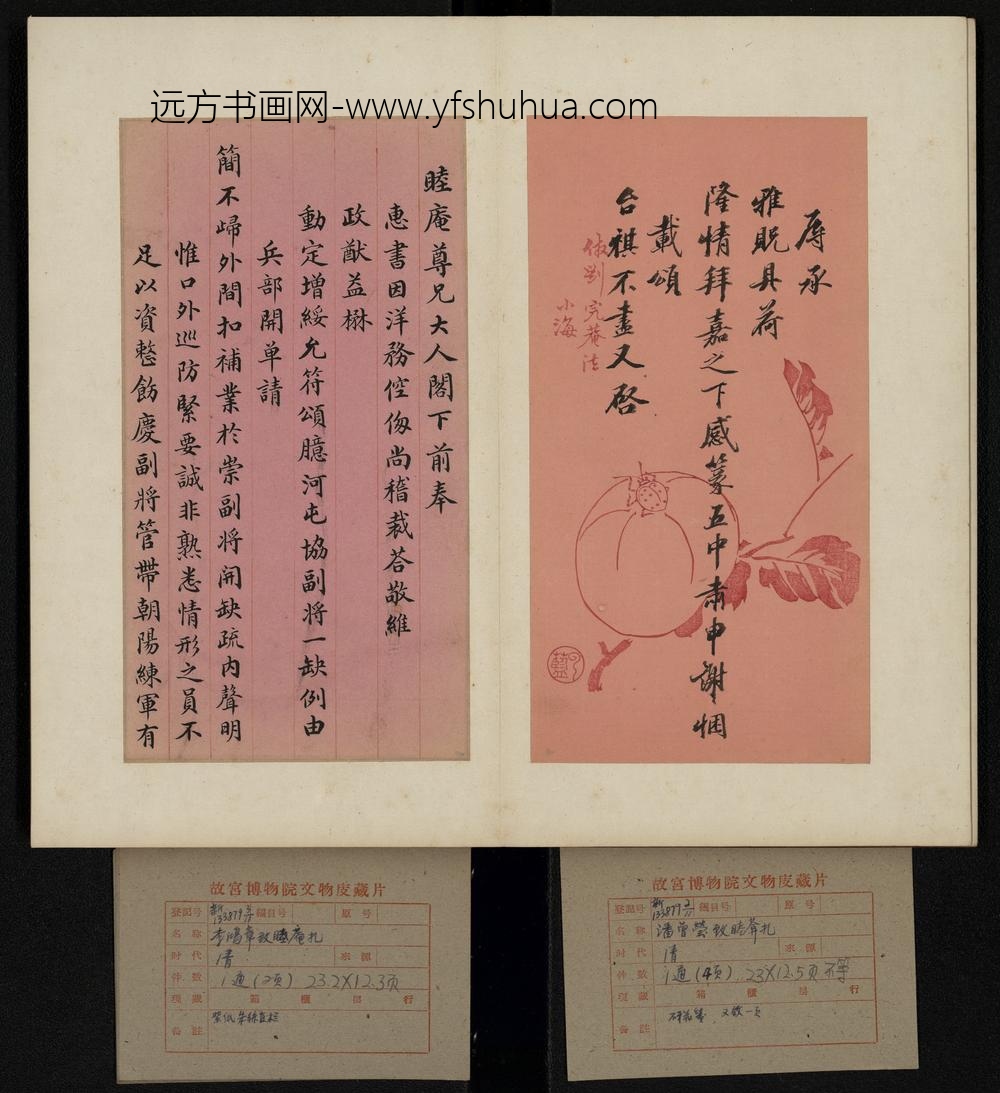 远方书画网-www.yfshuhua.com
辱承
雅貺具荷
隆情拜嘉之下感篆五中肅申謝悃
載頌
台祺不盡又啓
倣劉完菴法
小海
睦庵尊兄大人閣下前奉
惠書因洋務倥傯尚稽裁荅敬維
政猷益楙
動定增綏允符頌臆河屯協副將一缺例由
兵部開单請
簡不歸外間扣補業於崇副將開缺疏内聲明
惟口外巡防緊要誠非熟悉情形之員不
足以資整飭慶副將管帶朝陽練軍有
故宮博物院文物庋藏片
登記号 新133879 編目号 原号
名称 李鴻章致睦庵札
时代 清 來源
件數 1通(2页) 23.2X12.3页
現藏 箱 櫃 層 行
备註
故宮博物院文物庋藏片
登記号 新133879 編目号 原号
名称 潘曾瑩致睦聋札
时代 清 來源
件數 1通(4页) 23X12.5页不等
現藏 箱 櫃 層 行
备註 又啟一页